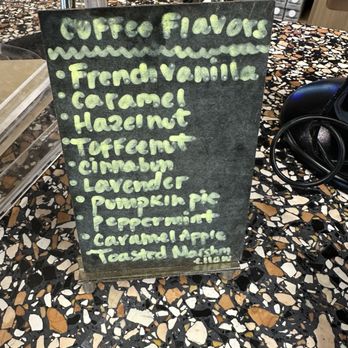 Coffee Flavors
• French Vanilla
• Caramel
• Hazelnut
Toffeenut
• Cinnabun
• Lavender
• Pumpkin pie
Peppermint
• Caramel Apple
Toasted Marshm
ellow